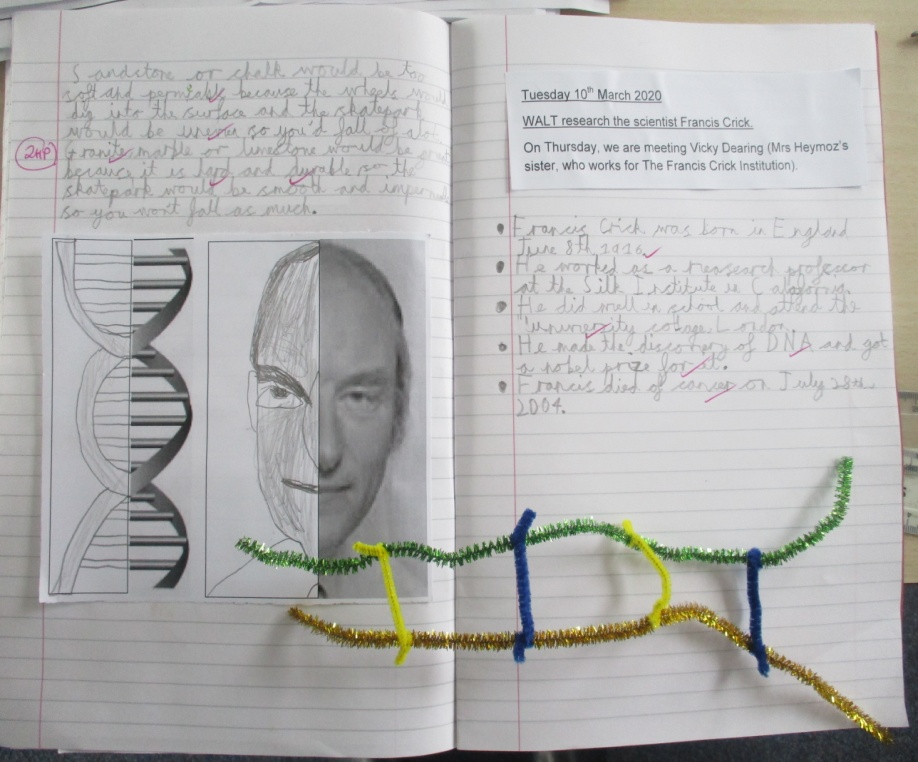 Sandstone or chalk would be too
soft and permiable because the wheels would
dig into the surface and the skatepark
would be uneven so you'd fall of alot
2HP
Granite, marble or limestone would be
because it is hard and durable so the
skatepark would be smooth and
so you wont fall as much.
Tuesday 10th March 2020
WALT research the scientist Francis Crick.
On Thursday, we are meeting Vicky Dearing (Mrs Heymoz's
sister, who works for The Francis Crick Institution).
• Francis Crick was born in England
June 8th 1916.
• He worked as a professor
at the Silk Institute in
• He did well in school and attend the
London.
• He made the discovery of DNA and got
a nobel prize for it.
• Francis died of cancer on July 28th
2004.